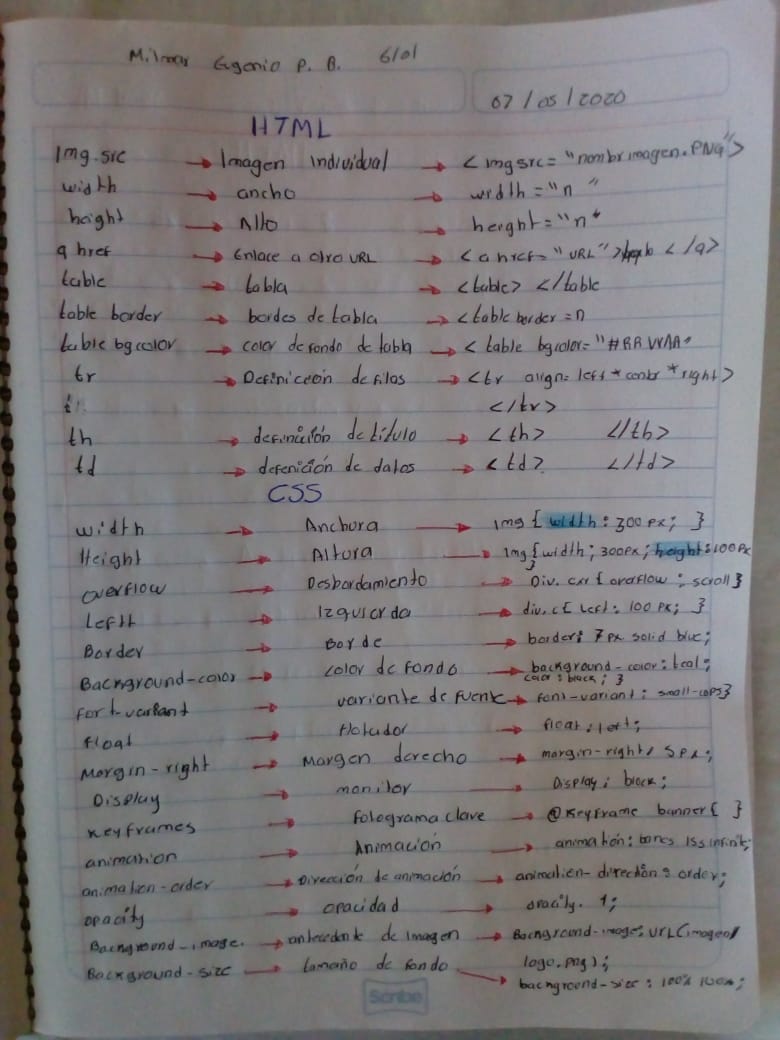 Milmar Eugenio P. B. 6/01
07/05/2020
HTML
Img.src → Imagen individual → <imgsrc="nombrimagen.PNG">
width → ancho → width="n"
height → Alto → height="n"
a href → Enlace a otro URL → <a href="URL"> </a>
table → tabla → <table> </table
table border → bordes de tabla → <table border=n
table bgcolor → color de fondo de tabla → <table bgcolor="#RRVVAA"
tr → Definición de filas → <tr align=left*center*right>
</tr>
th → definición de título → <th> </th>
td → defenición de datos → <td> </td>
CSS
width → Anchura → img{width:300px;}
Height → Altura → img{width;300px;height:100px
}
overflow → Desbordamiento → Div.cxr{overflow:scroll}
Leftt → Izquierda → div.c{left:100px;}
Border → Borde → border: 7px solid blue;
Background-color → color de fondo → background-color:teal;
color:black;}
font-variant → variante de fuente → font-variant:small-caps}
float → flotador → float:left;
Margin-right → Margen derecho → margin-right: 5px;
Display → monitor → Display: block;
Keyframes → fotograma clave → @Keyframe banner{ }
animation → Animación → animation: 15s infinit;
animation-order → Dirección de animación → animation-direction: order;
opacity → opacidad → opacity. 1;
Background-image. → antecedente de imagen → Background-image:URL(imagen/
logo.png);
Background-size → tamaño de fondo → background-size: 100% 100%;
Scribe